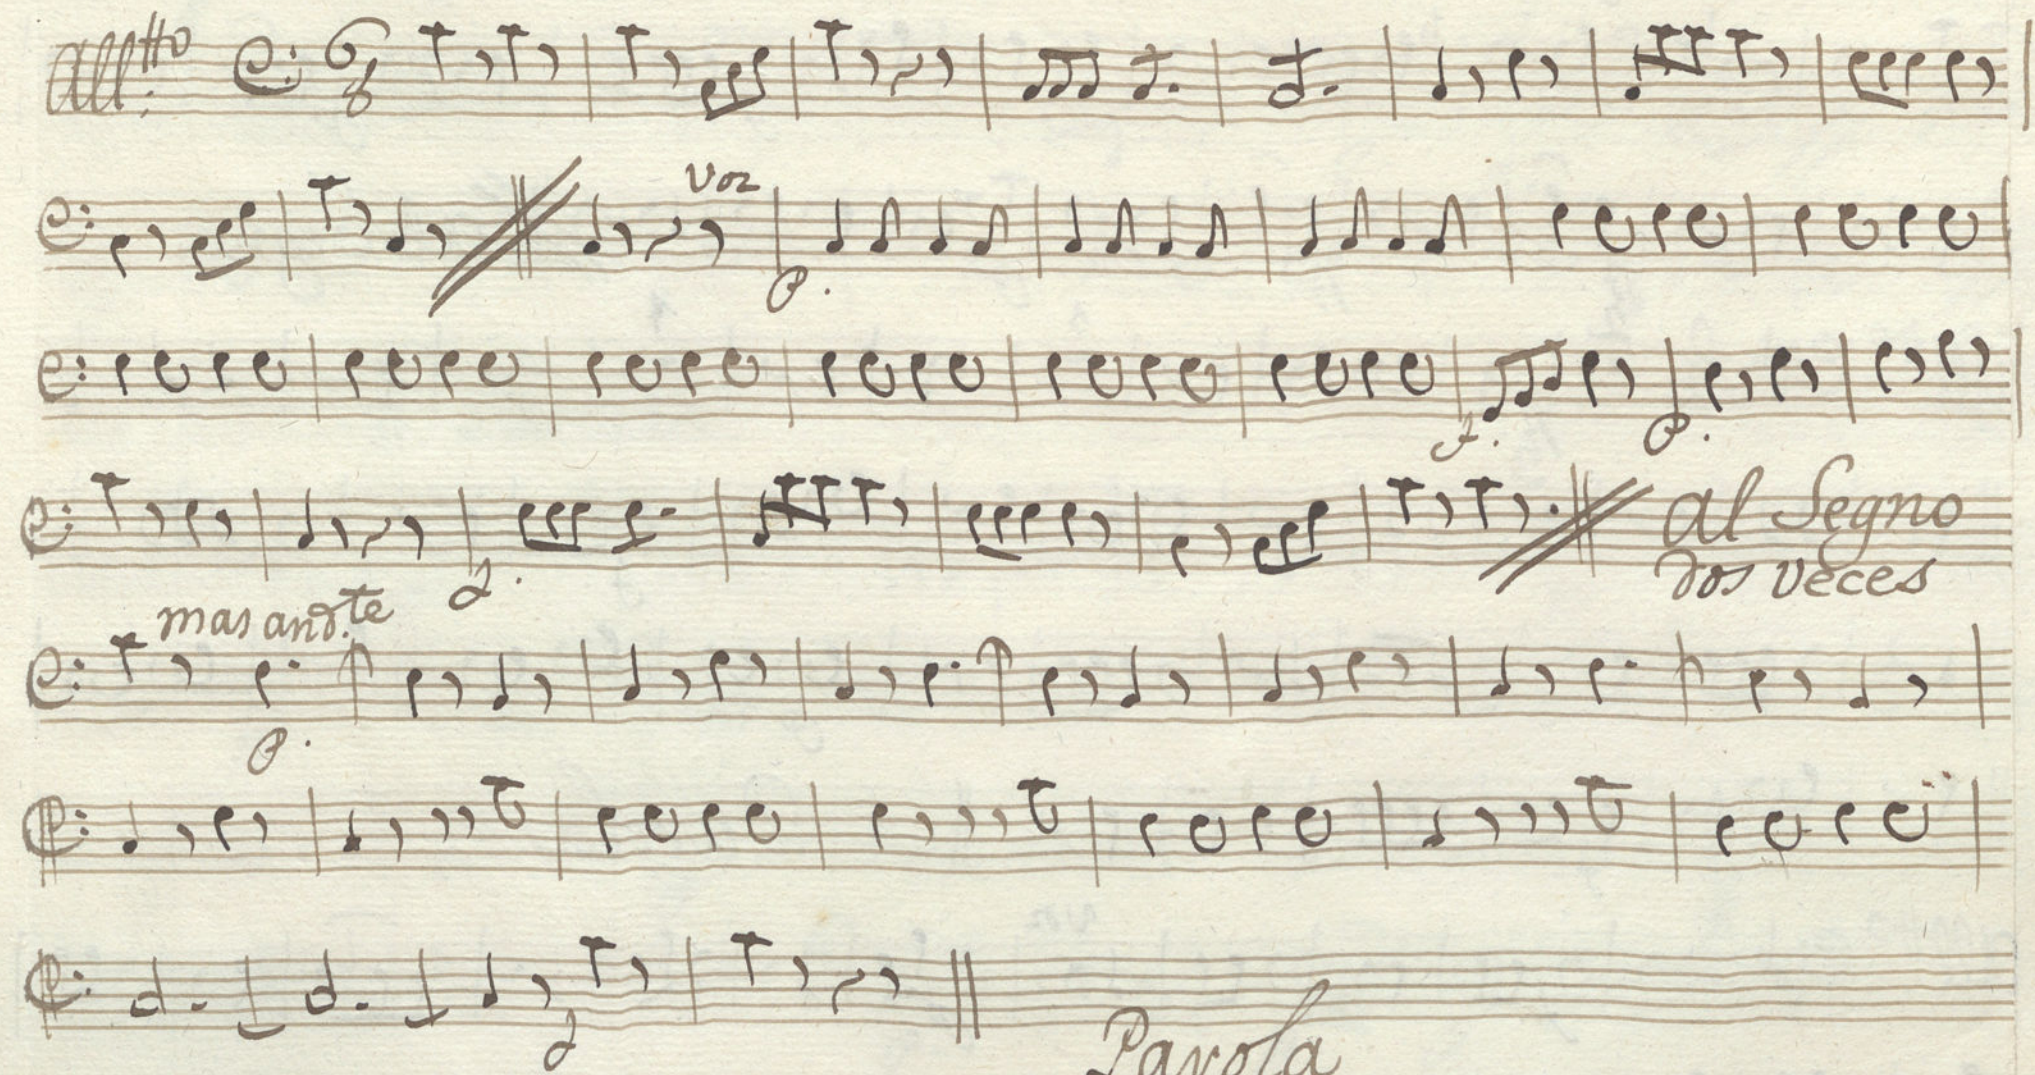 All:tto 6 8
voz
P.
f. P.
al Segno
dos veces
mas and.te
P.
Parola